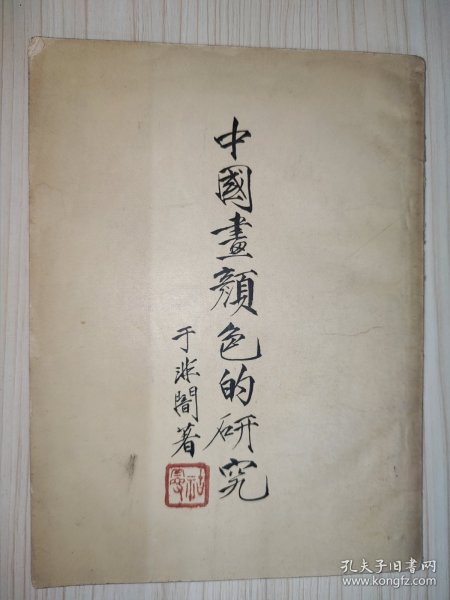 中國畫顏色的研究
于非闇著
孔夫子旧书网
www.kongfz.com